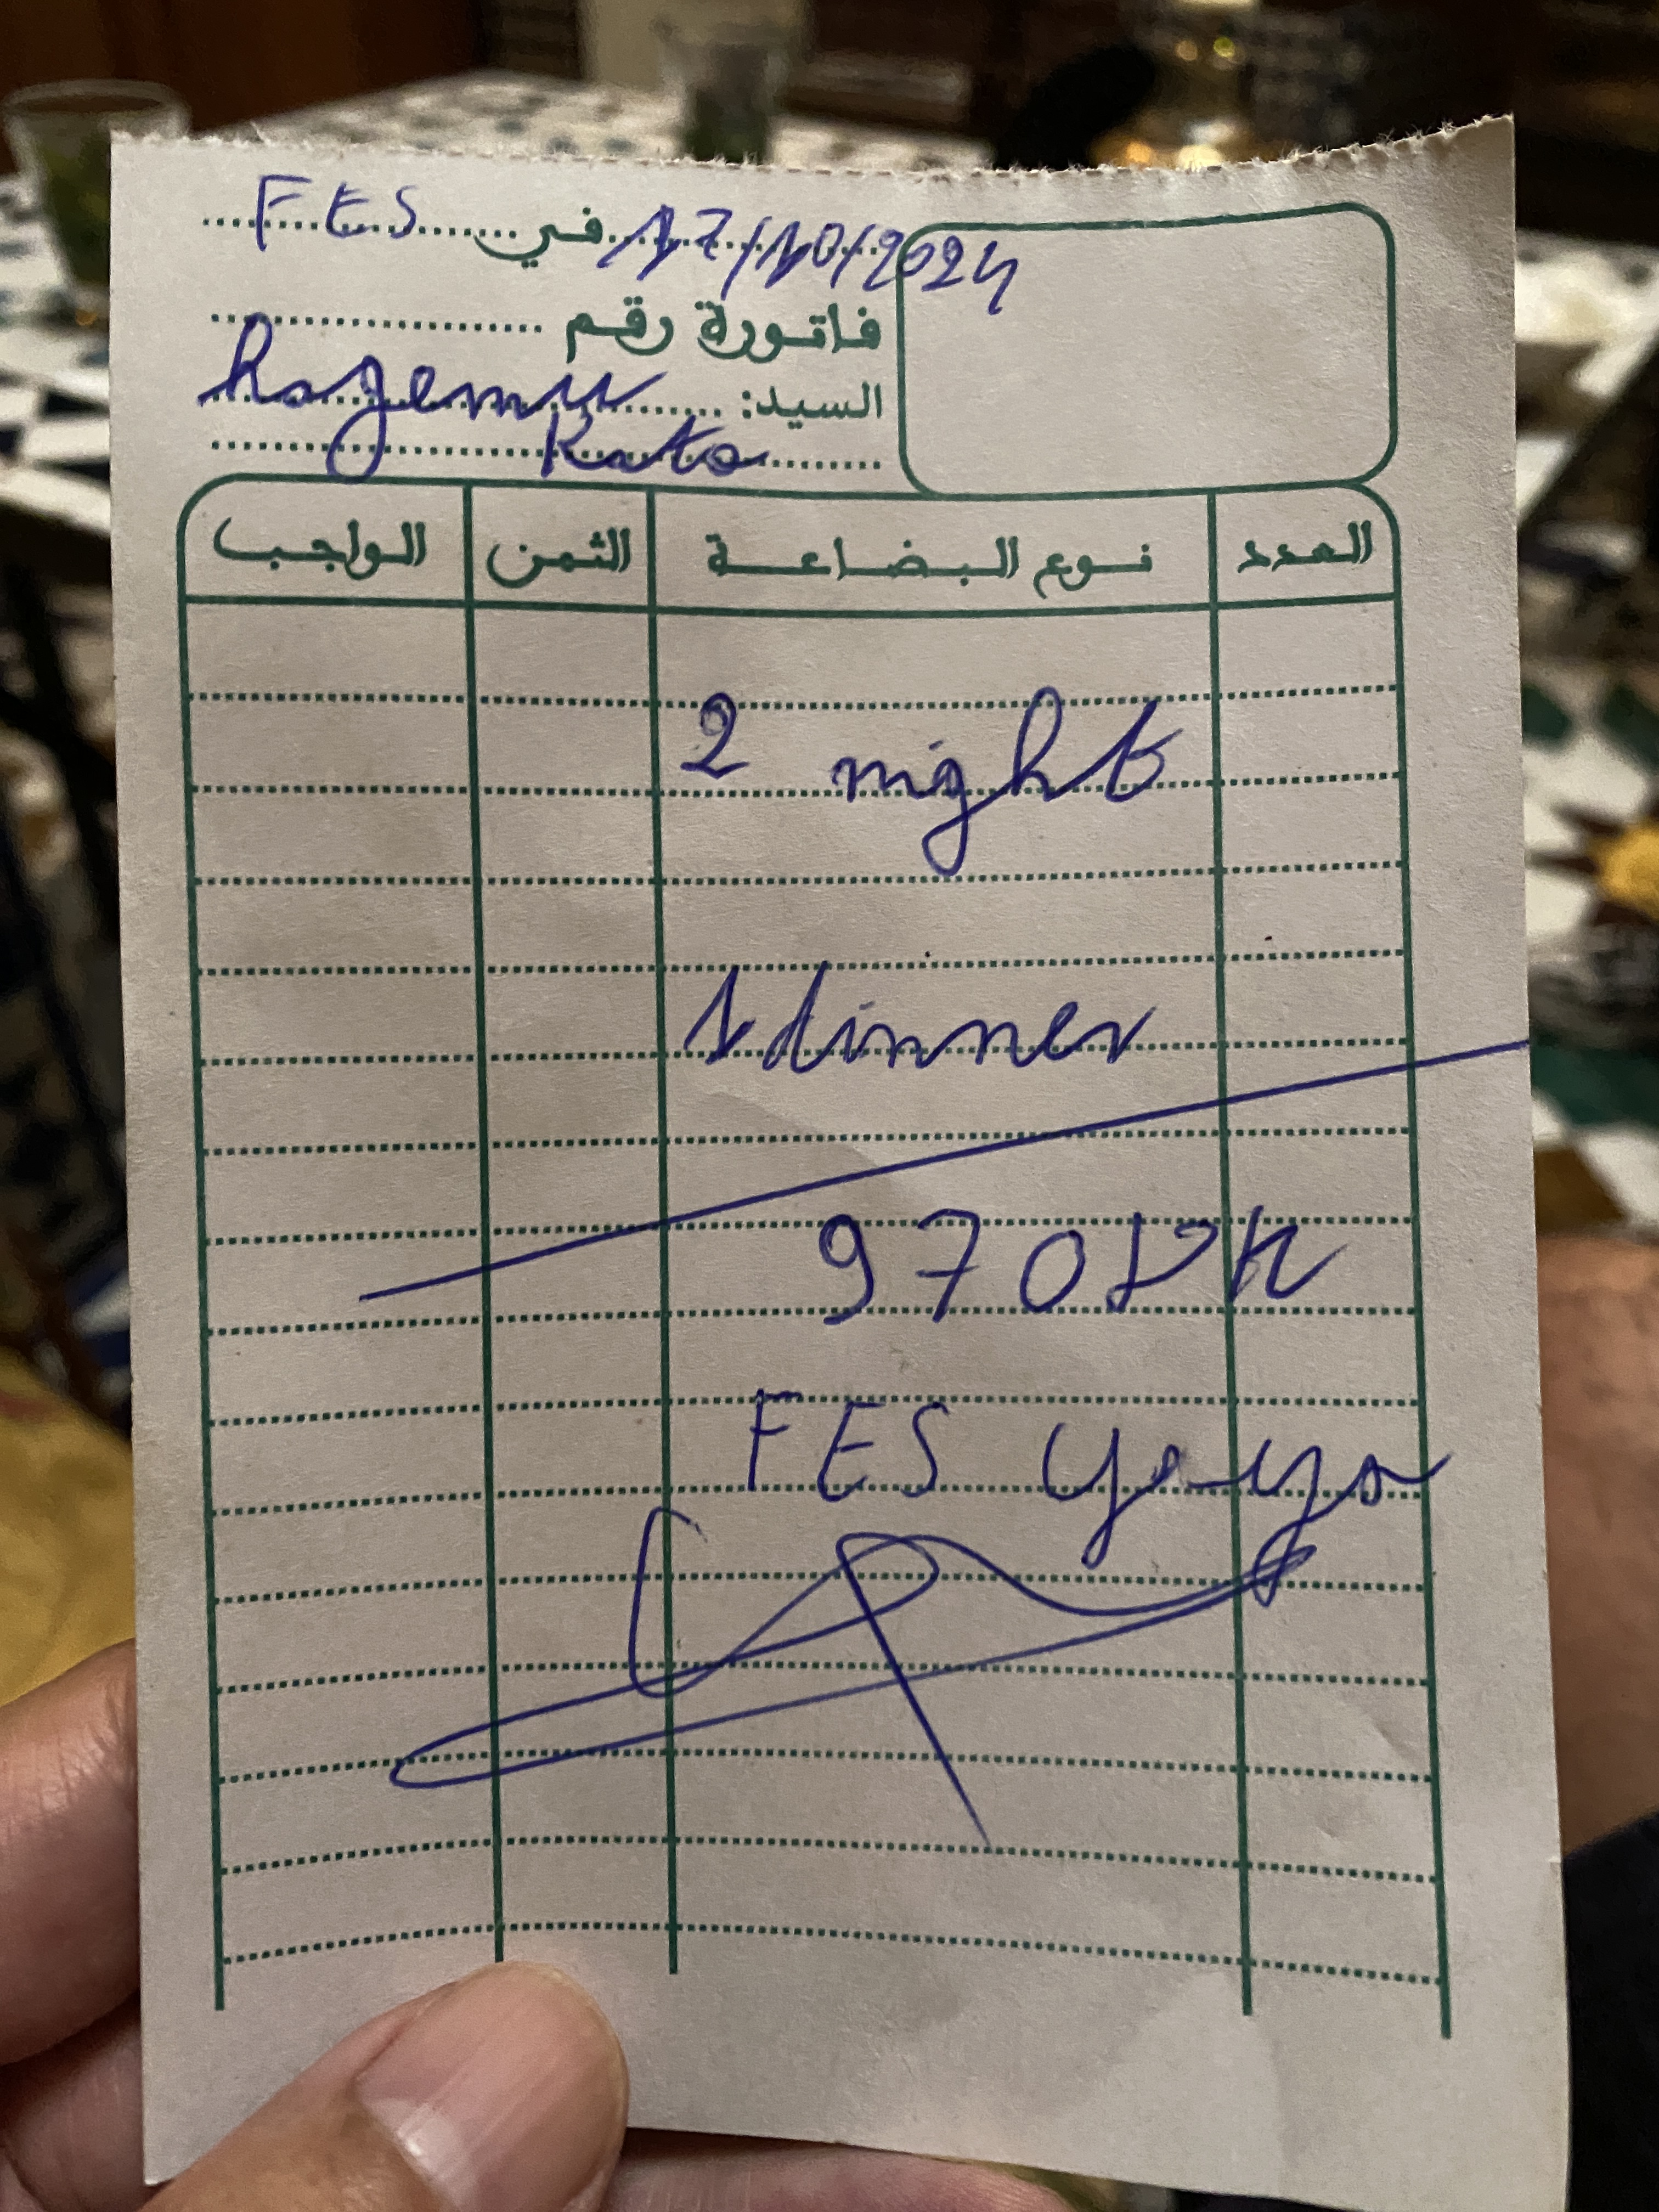 FES في 17/10/2024
فاتورة رقم
السيد: hagemu
Kato
العدد نوع البضاعة الثمن الواجب
2 night
1 dinner
970 DH
FES Yaya